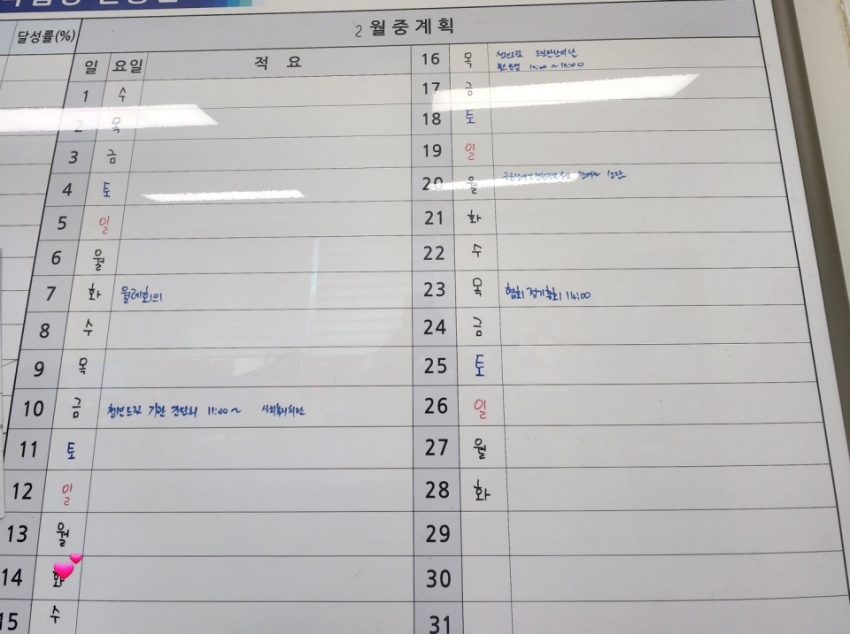 달성률(%)
2월중계획
일 요일 적요
1 수
2 목
3 금
4 토
5 일
6 월
7 화 월례회의
8 수
9 목
10 금 청년드림 기관 간담회 11:00~
11 토
12 일
13 월
14 화
15 수
16 목
17 금
18 토
19 일
20 월
21 화
22 수
23 목 협회 정기총회 14:00
24 금
25 토
26 일
27 월
28 화
29
30
31